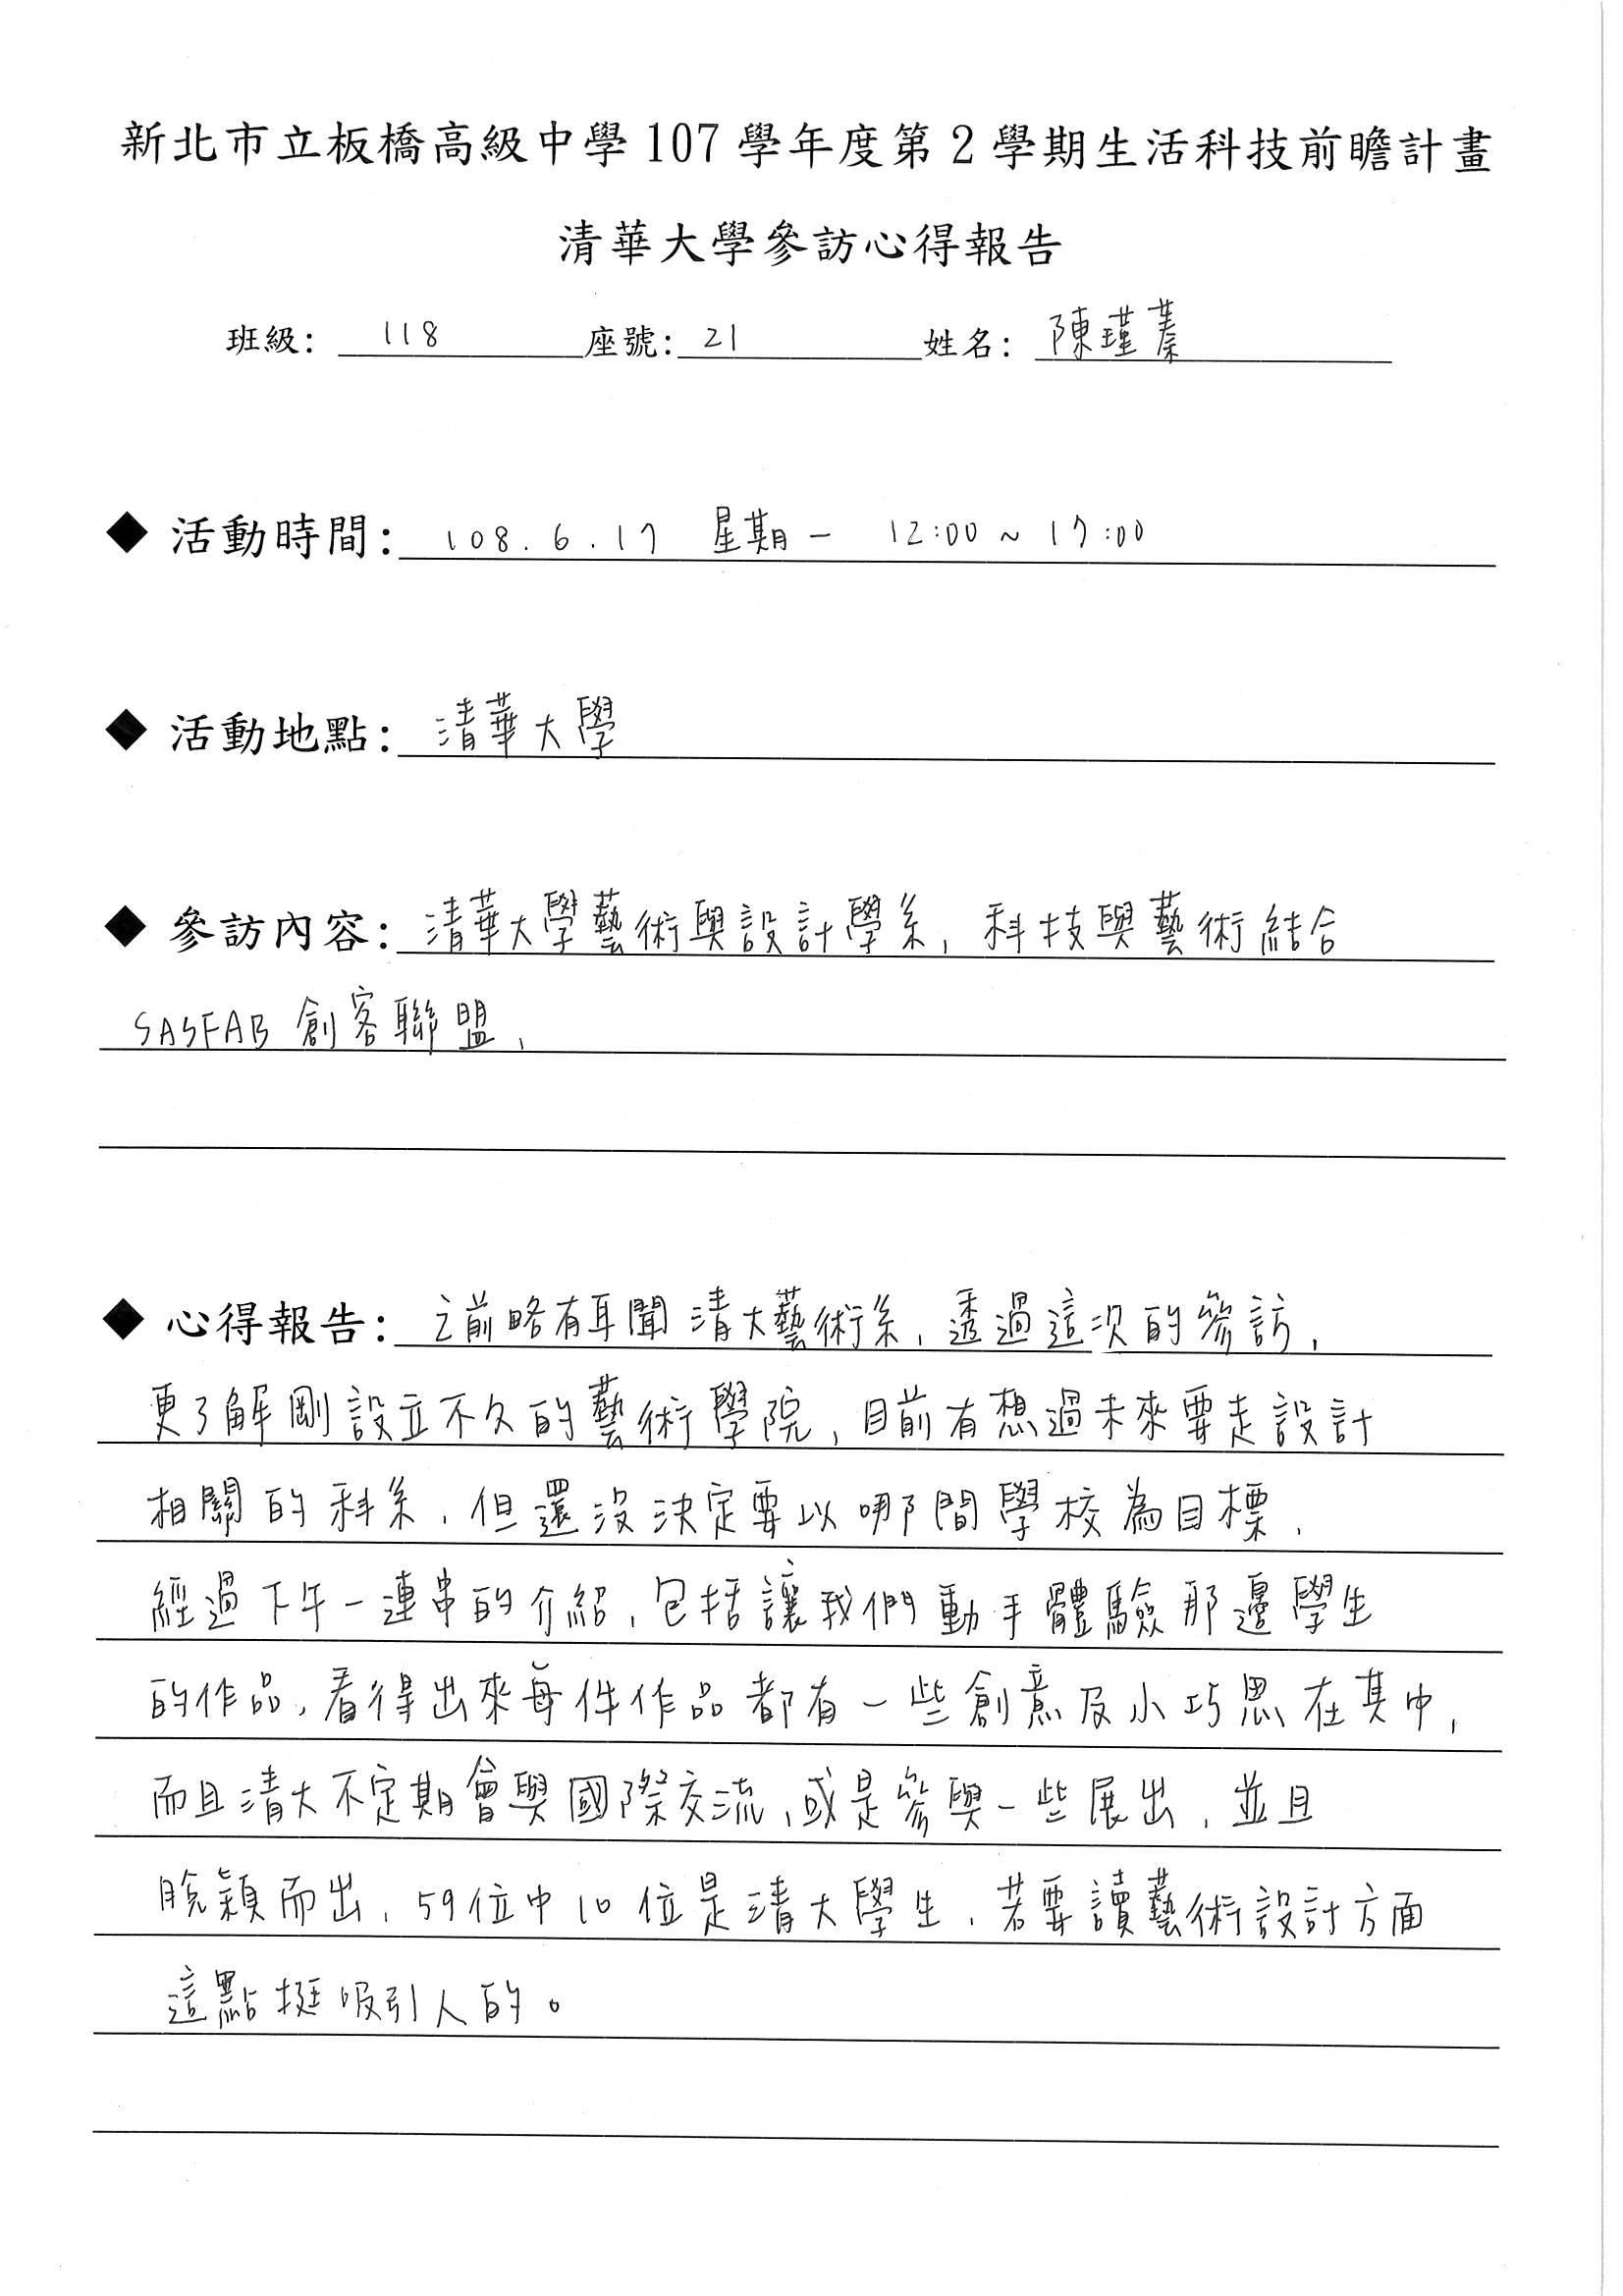 新北市立板橋高級中學107學年度第2學期生活科技前瞻計畫
清華大學參訪心得報告
班級: 118 座號: 21 姓名: 陳瑾蓁
◆ 活動時間: 108.6.17 星期一 12:00~17:00
◆ 活動地點: 清華大學
◆ 參訪內容: 清華大學藝術與設計學系, 科技與藝術結合
SASFAB 創客聯盟,
◆ 心得報告: 之前略有耳聞清大藝術系, 透過這次的參訪,
更了解剛設立不久的藝術學院, 目前有想過未來要走設計
相關的科系, 但還沒決定要以哪間學校為目標,
經過下午一連串的介紹, 包括讓我們動手體驗那邊學生
的作品, 看得出來每件作品都有一些創意及小巧思在其中,
而且清大不定期會與國際交流, 或是參與一些展出, 並且
脫穎而出, 59位中10位是清大學生, 若要讀藝術設計方面
這點挺吸引人的。